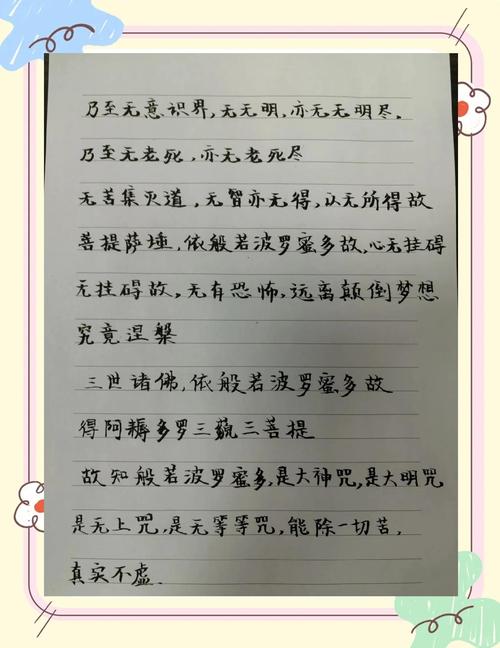 乃至无意识界，无无明，亦无无明尽，
乃至无老死，亦无老死尽
无苦集灭道，无智亦无得，以无所得故
菩提萨埵，依般若波罗蜜多故，心无挂碍
无挂碍故，无有恐怖，远离颠倒梦想
究竟涅槃
三世诸佛，依般若波罗蜜多故
得阿耨多罗三藐三菩提
故知般若波罗蜜多，是大神咒，是大明咒
是无上咒，是无等等咒，能除一切苦，
真实不虚.